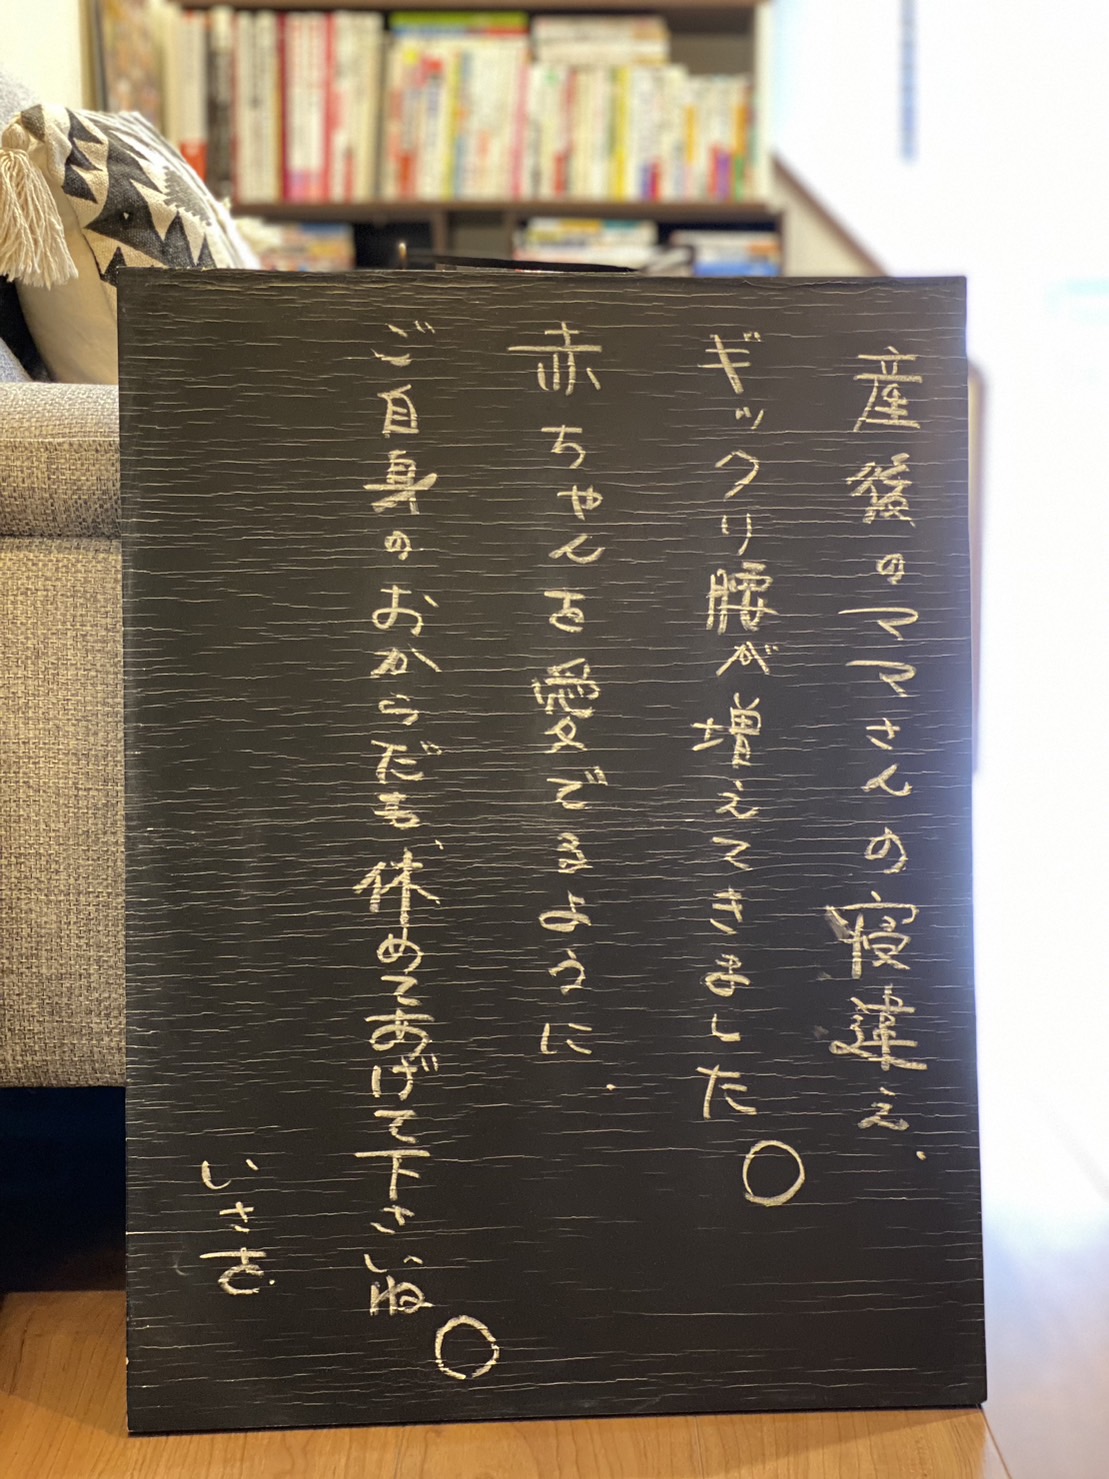 産後のママさんの寝違え、
ギックリ腰が増えてきました。
赤ちゃんを愛でるように、
ご自身のおからだも、休めてあげて下さいね。
いさを